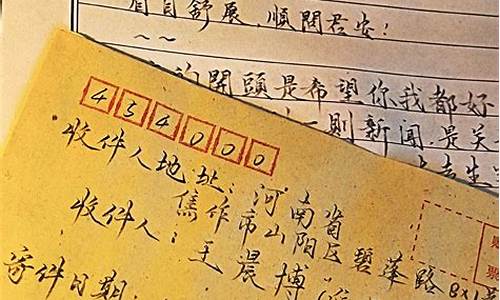 眉目舒展,順問君安!
~~
的開頭是希望你我都好
一則新闻,是关
454000
收件人地址:河南省
焦作市山阳区碧莲路
收件人:王晨博
寄件日期